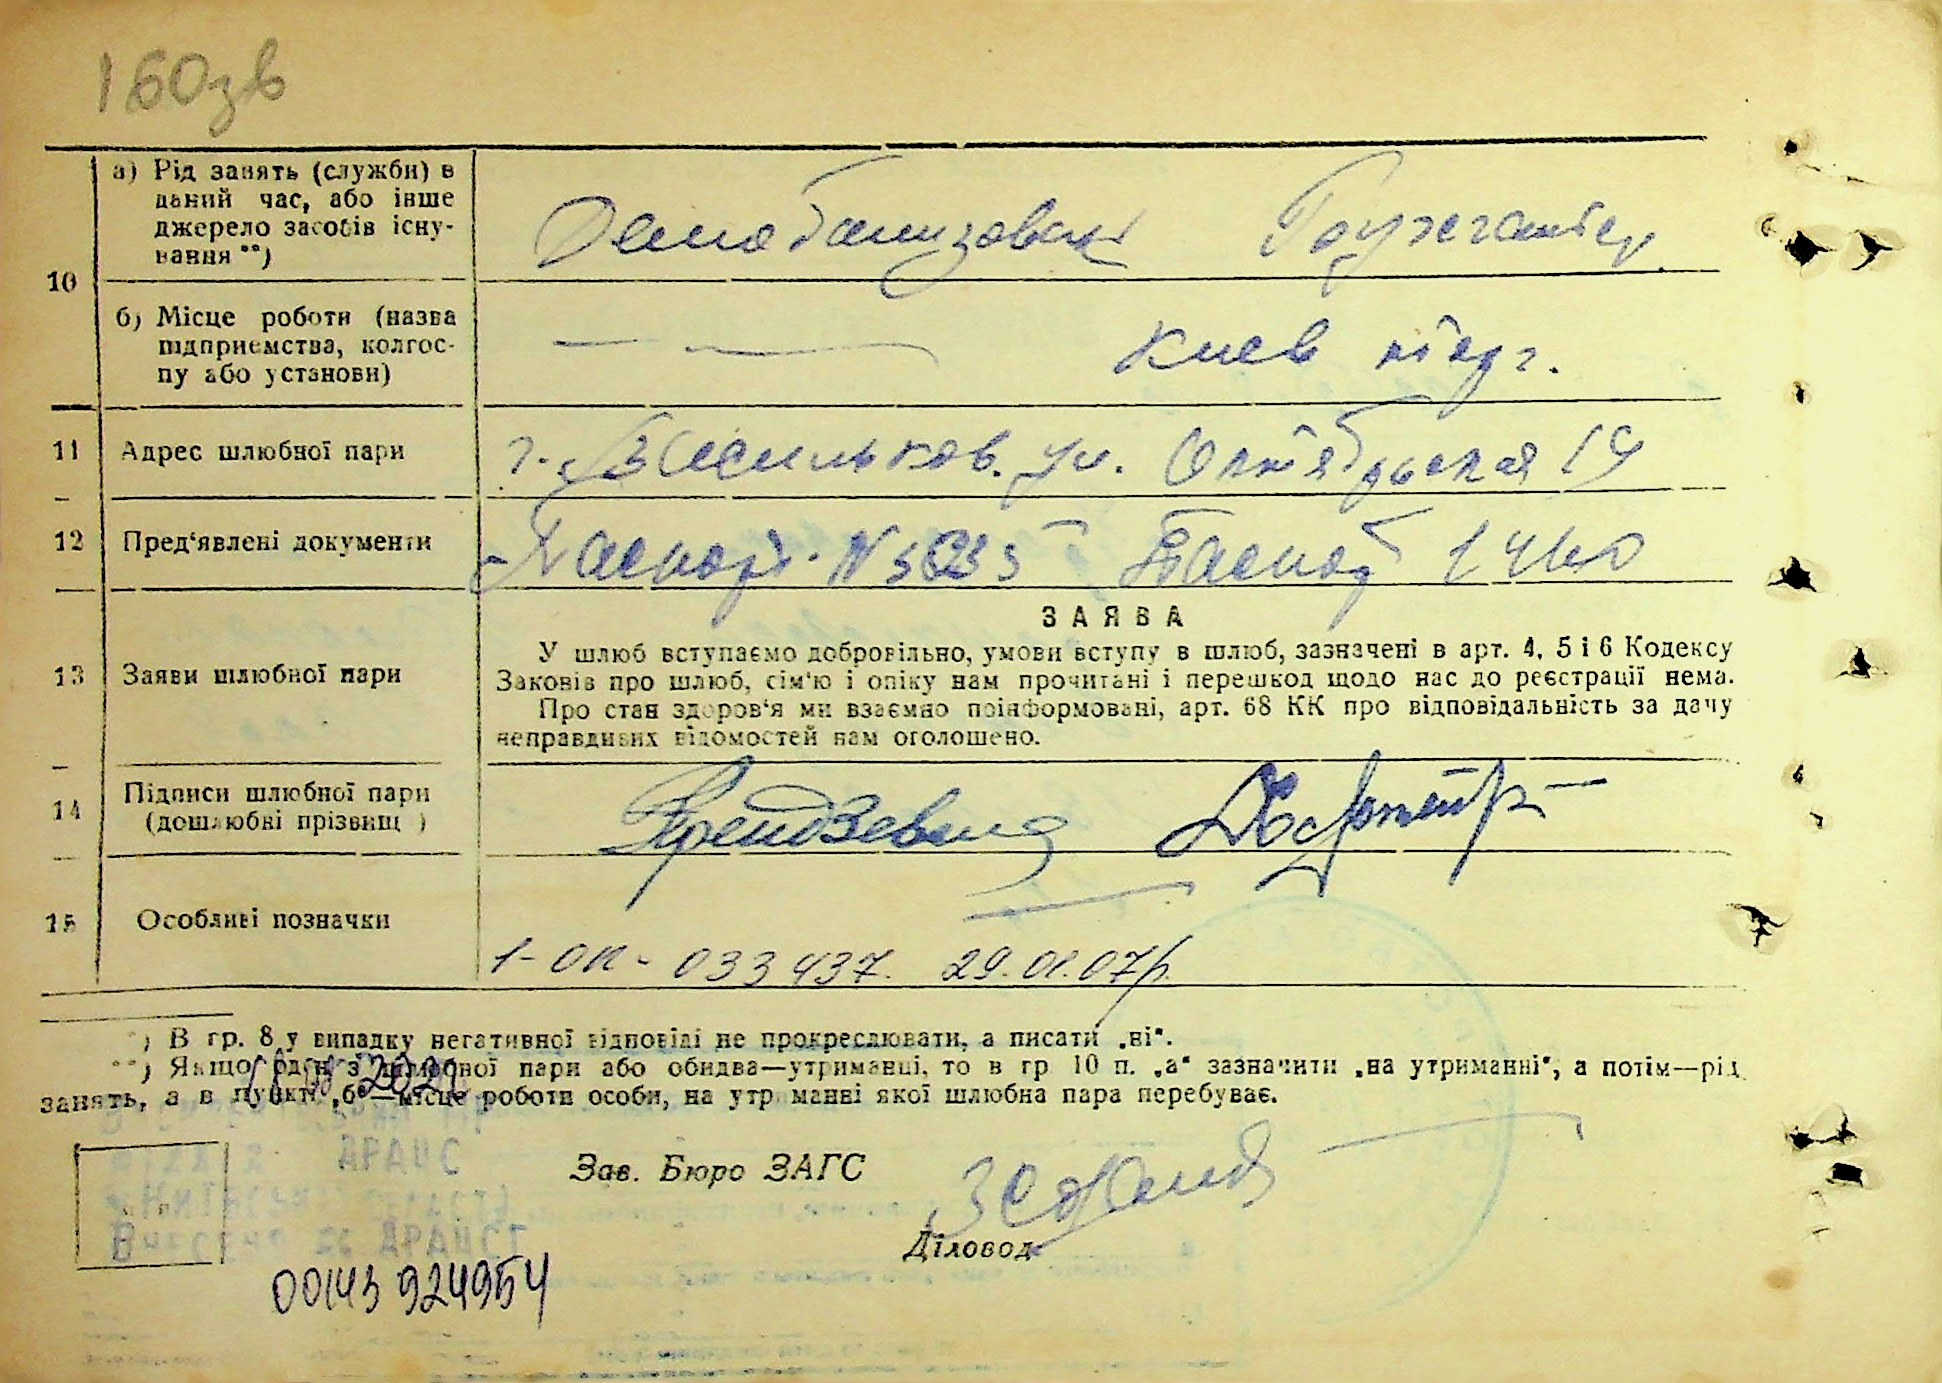 160зв
а) Рід занять (служби) в
даний час, або інше
джерело засобів існу-
вання **)
Демобилизован Бухгалтер
10
б) Місце роботи (назва
підприємства, колгос-
пу або установи)
— — Киев
11 Адрес шлюбної пари г. Васильков. ул. Октябрьская 19
12 Пред'явлені документи Паспорт. N Паспорт
ЗАЯВА
13 Заяви шлюбної пари
У шлюб вступаємо добровільно, умови вступу в шлюб, зазначені в арт. 4, 5 і 6 Кодексу
Законів про шлюб, сім'ю і опіку нам прочитані і перешкод щодо нас до реєстрації нема.
Про стан здоров'я ми взаємно поінформовані, арт. 68 КК про відповідальність за дачу
неправдивих відомостей нам оголошено.
14 Підписи шлюбної пари
(дошлюбні прізвищ )
15 Особливі позначки
1-ОК- 033437. 29.01.07р.
*) В гр. 8 у випадку негативної відповіді не прокреслювати, а писати „ні".
**) Якщо один з шлюбної пари або обидва—утриманці, то в гр 10 п. „а" зазначити „на утриманні", а потім—рід
занять, а в пункті „б"—місце роботи особи, на утриманні якої шлюбна пара перебуває.
АРАЦС
Зав. Бюро ЗАГС
Внесено до ДРАЦСГ
Діловод
00143924954